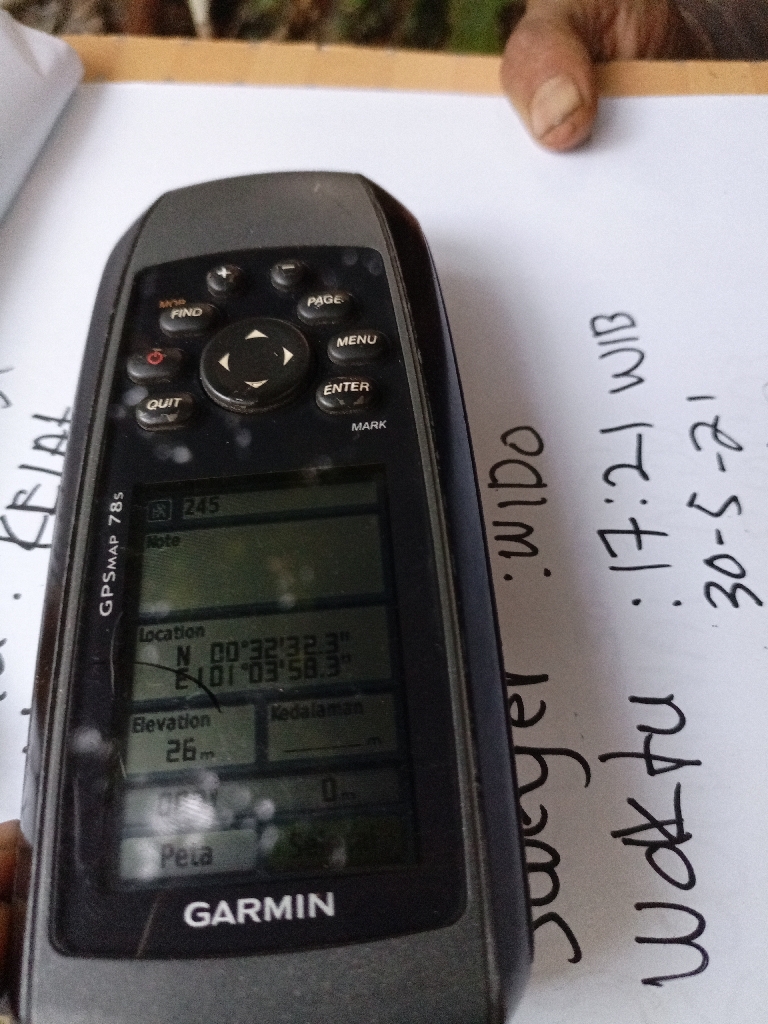 MOB
FIND
PAGE
MENU
QUIT
ENTER
MARK
GPSMAP 78s
245
Note
Location
N 00°32'32.3"
E101°03'58.3"
Elevation
26m
Kedalaman
m
0m
Peta
GARMIN
:WIDO
Waktu :17:21 WIB
30-5-21